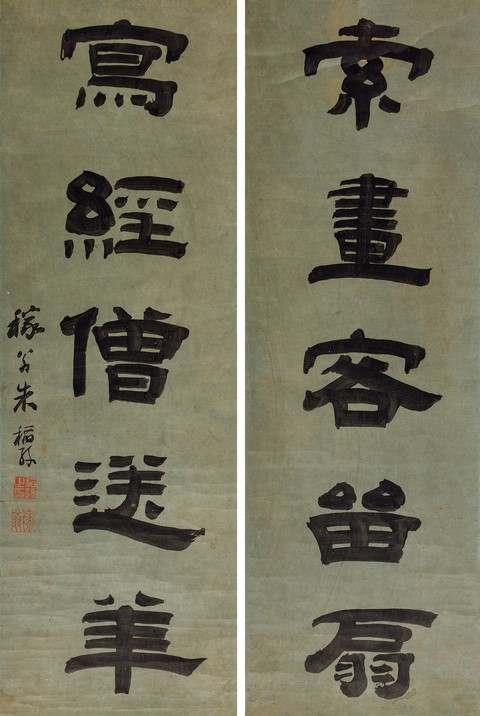 索畫客留扇
寫經僧送羊
稼翁朱稻孫